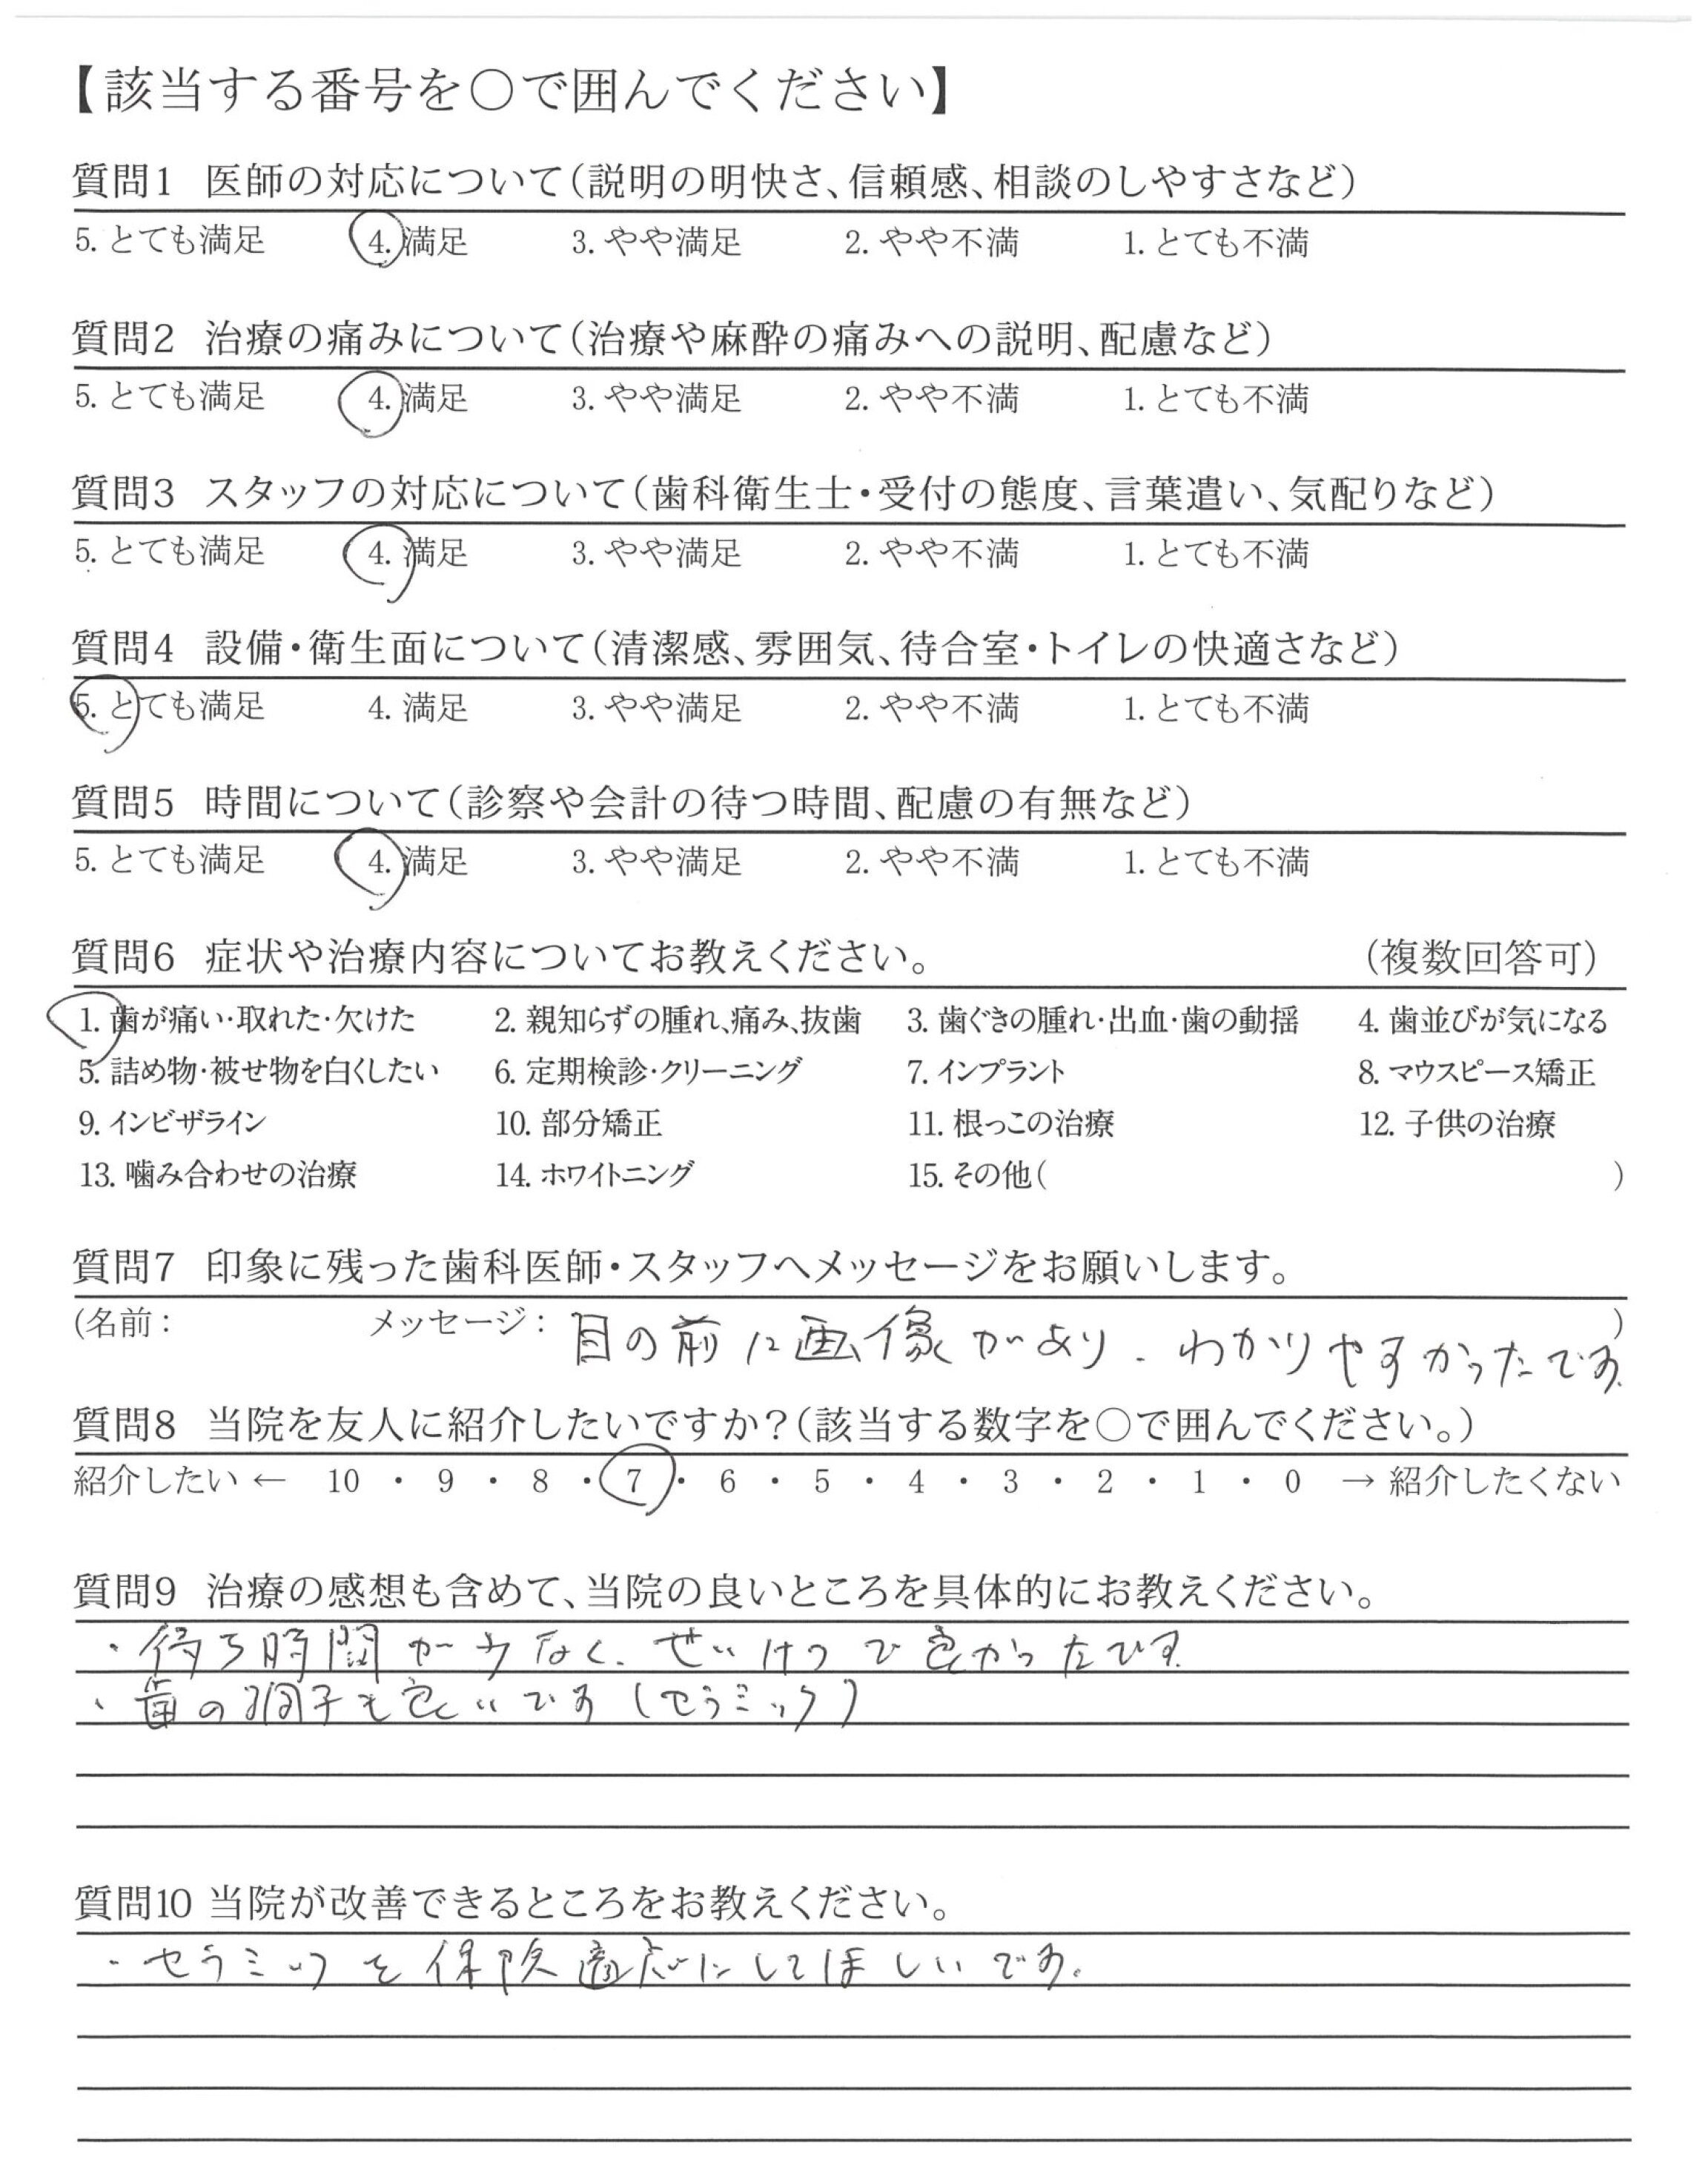 【該当する番号を○で囲んでください】
質問1 医師の対応について(説明の明快さ、信頼感、相談のしやすさなど)
5. とても満足 4. 満足 3. やや満足 2. やや不満 1. とても不満
質問2 治療の痛みについて(治療や麻酔の痛みへの説明、配慮など)
5. とても満足 4. 満足 3. やや満足 2. やや不満 1. とても不満
質問3 スタッフの対応について(歯科衛生士・受付の態度、言葉遣い、気配りなど)
5. とても満足 4. 満足 3. やや満足 2. やや不満 1. とても不満
質問4 設備・衛生面について(清潔感、雰囲気、待合室・トイレの快適さなど)
5. とても満足 4. 満足 3. やや満足 2. やや不満 1. とても不満
質問5 時間について(診察や会計の待つ時間、配慮の有無など)
5. とても満足 4. 満足 3. やや満足 2. やや不満 1. とても不満
質問6 症状や治療内容についてお教えください。 (複数回答可)
1. 歯が痛い・取れた・欠けた 2. 親知らずの腫れ、痛み、抜歯 3. 歯ぐきの腫れ・出血・歯の動揺 4. 歯並びが気になる
5. 詰め物・被せ物を白くしたい 6. 定期検診・クリーニング 7. インプラント 8. マウスピース矯正
9. インビザライン 10. 部分矯正 11. 根っこの治療 12. 子供の治療
13. 噛み合わせの治療 14. ホワイトニング 15. その他( )
質問7 印象に残った歯科医師・スタッフへメッセージをお願いします。
(名前: メッセージ: 目の前に画像があり、わかりやすかったです。 )
質問8 当院を友人に紹介したいですか?(該当する数字を○で囲んでください。)
紹介したい ← 10 ・ 9 ・ 8 ・ 7 ・ 6 ・ 5 ・ 4 ・ 3 ・ 2 ・ 1 ・ 0 → 紹介したくない
質問9 治療の感想も含めて、当院の良いところを具体的にお教えください。
・待ち時間が少なく、せいけつで良かったです。
・歯の調子も良いです(セラミック)
質問10 当院が改善できるところをお教えください。
・セラミックを保険適応にしてほしいです。